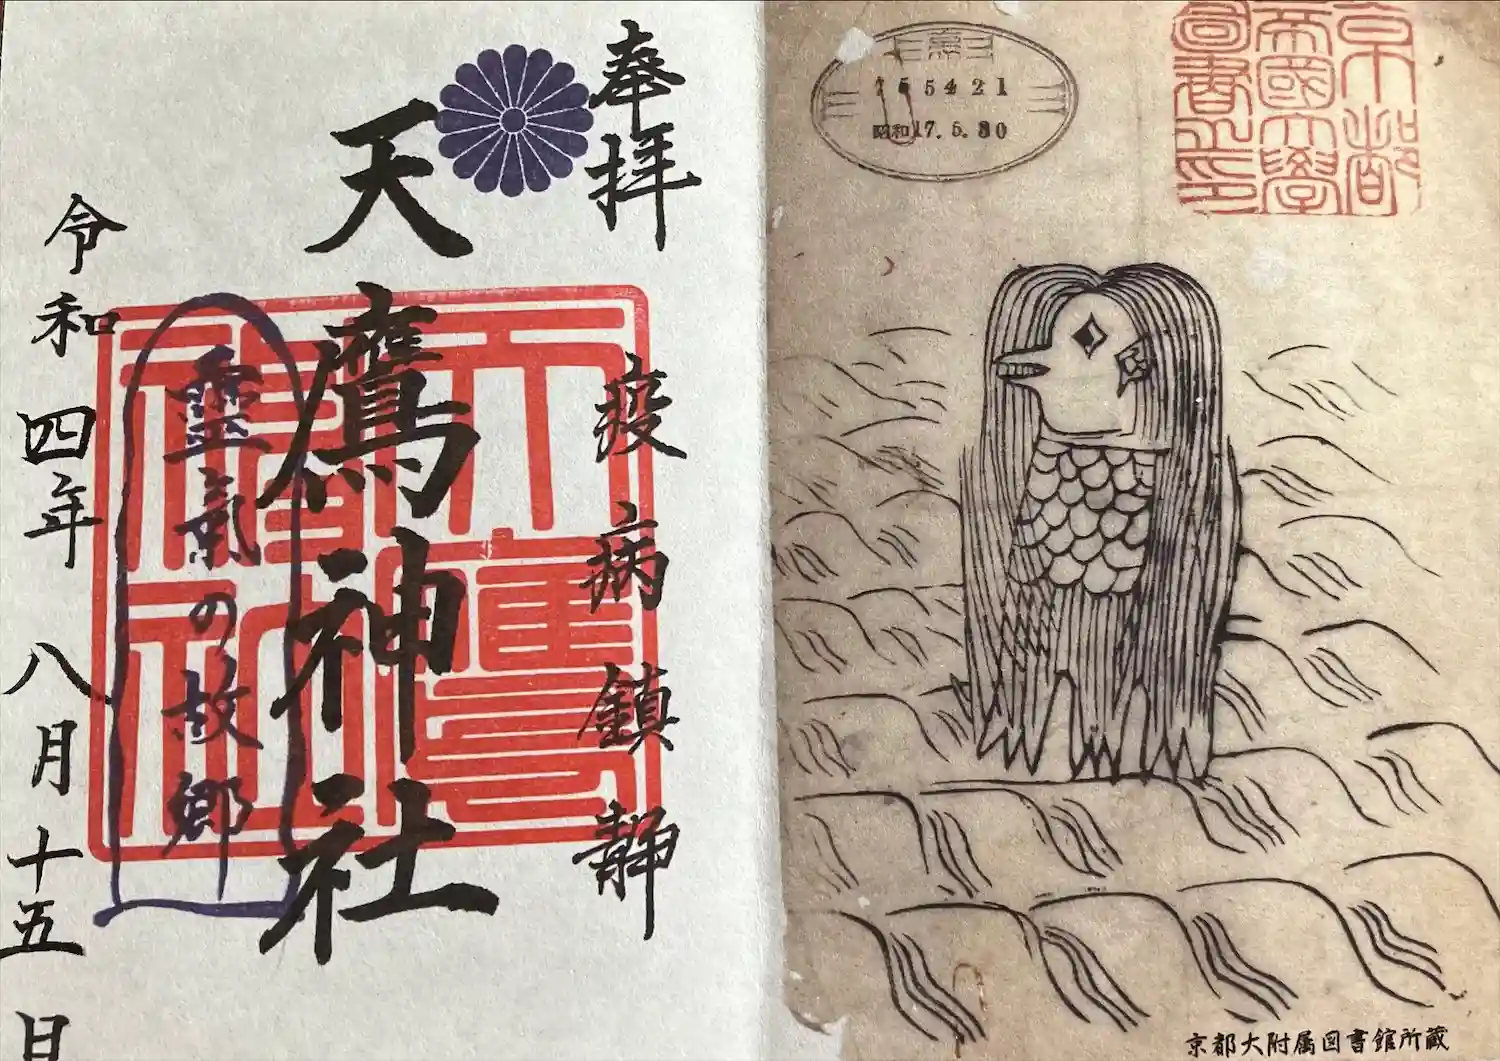 奉拝
疫病鎮静
天鷹神社
靈氣の故郷
令和四年八月十五日
天鷹神社
京都
帝國大學
圖書之印
圖
155421
昭和17.5.30
京都大附属図書館所蔵